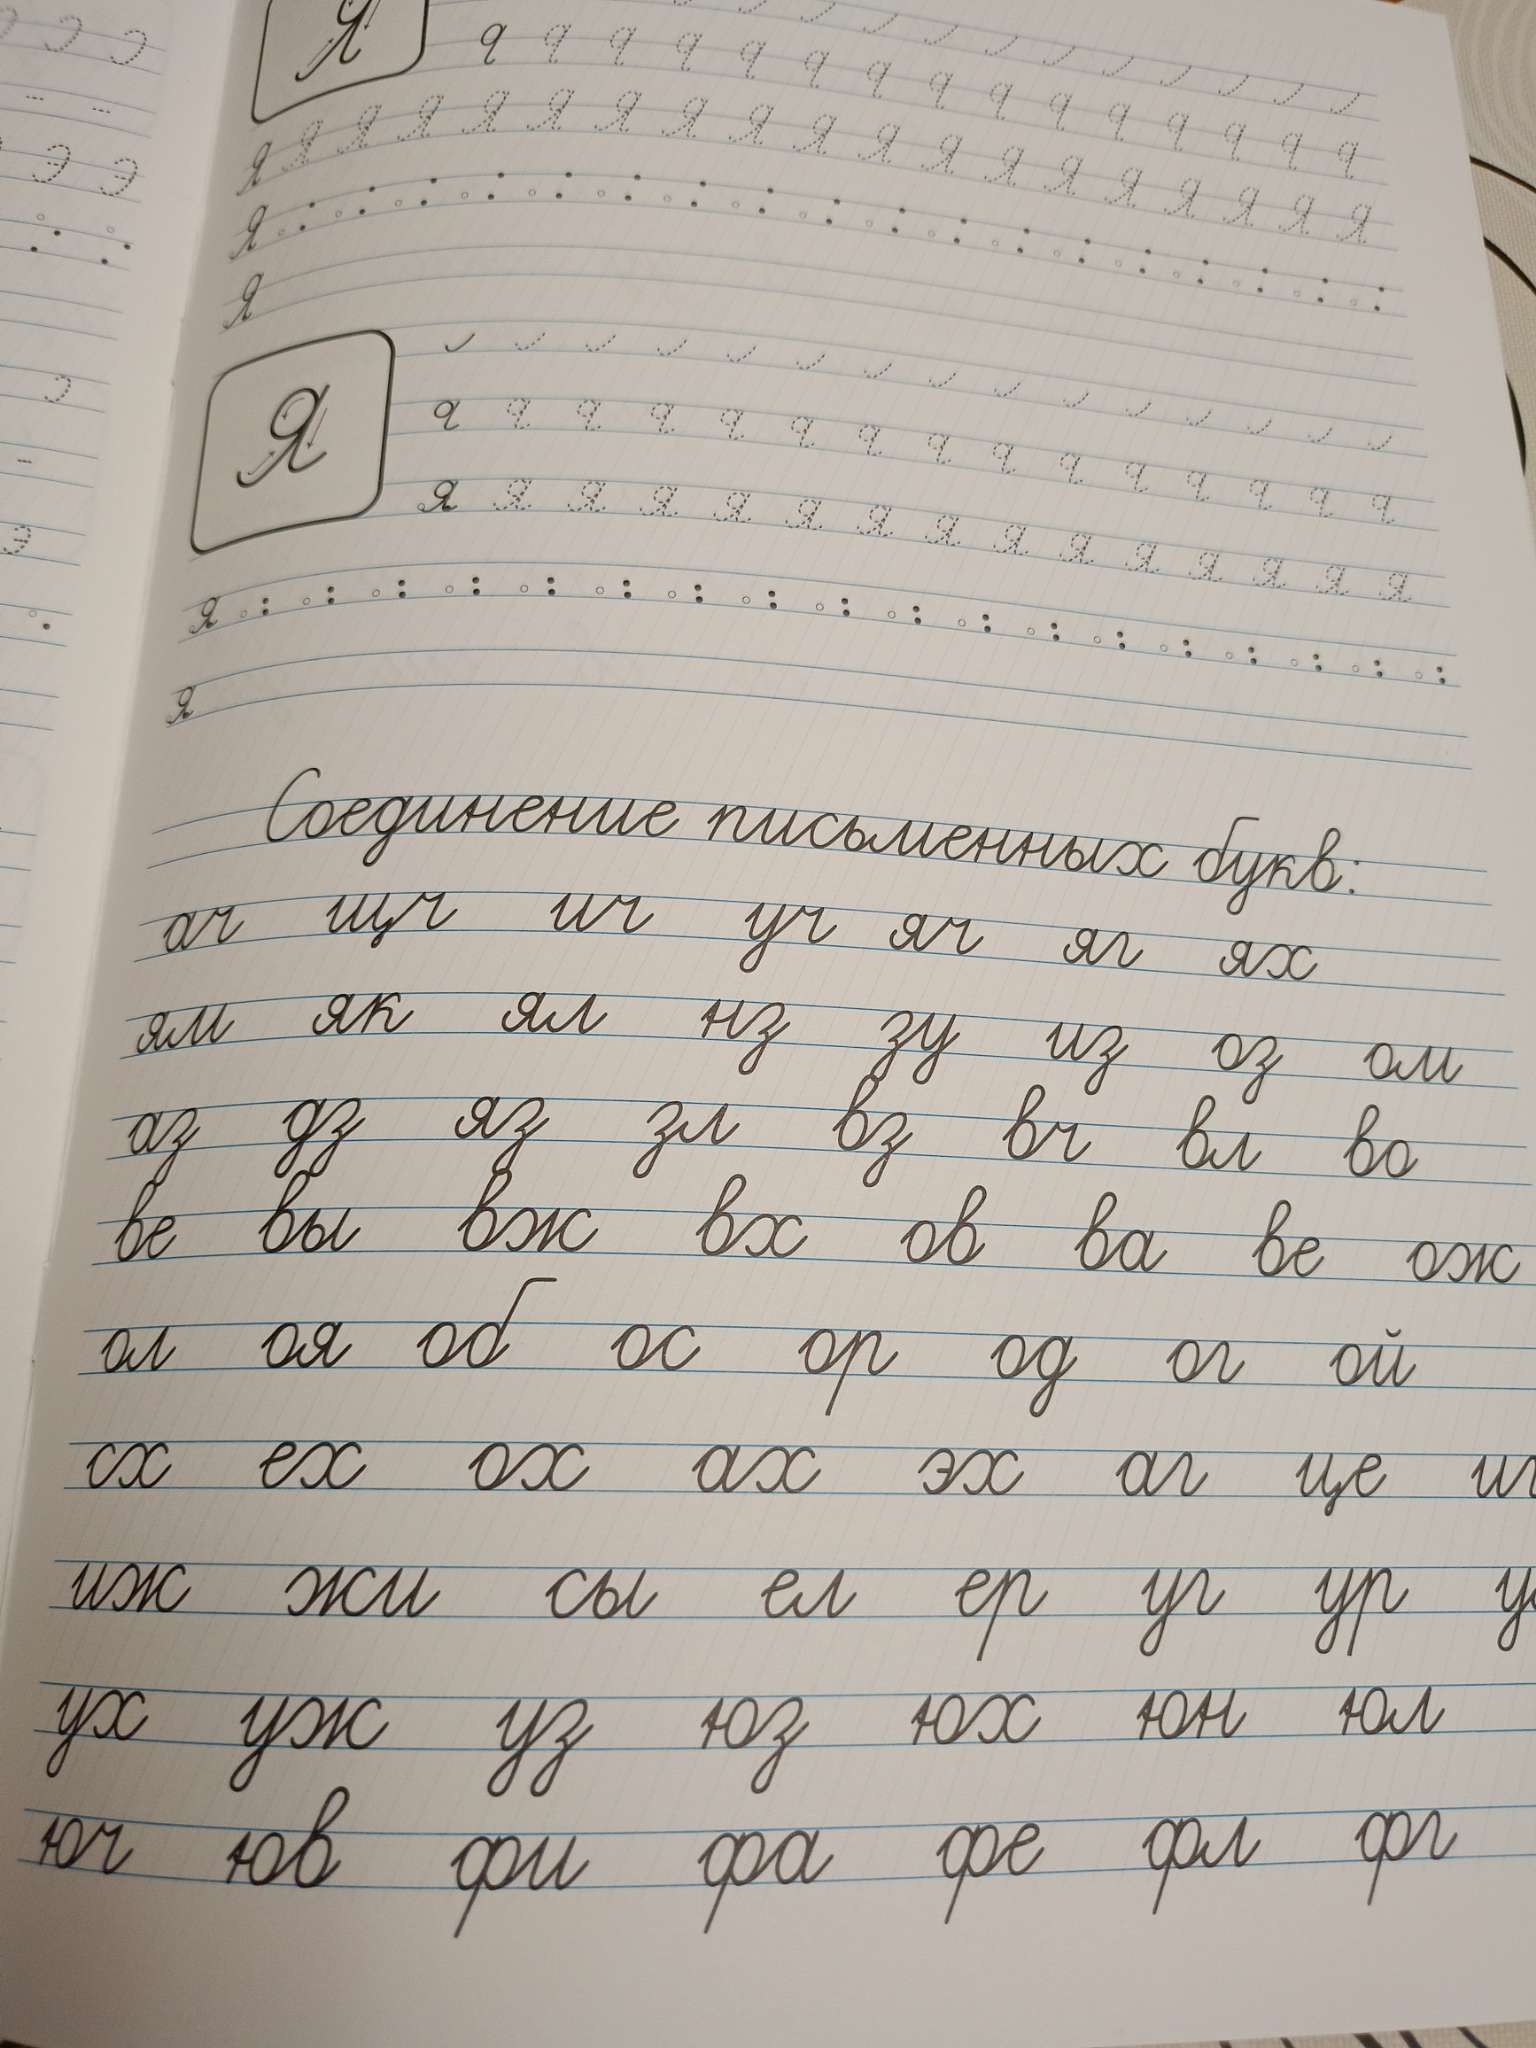 Я
Я Я Я Я Я Я Я Я Я Я Я Я Я Я Я Я Я Я
Я
Я
Я
я я я я я я я я я я я я я я я
я
я
Соединение письменных букв:
ач щч ич уч яч яг ях
ям як ял нз зу из оз ом
аз дз яз зл вз вч вл во
ве вы вж вх ов ва ве ож
ол оя об ос ор од ог ой
сх ех ох ах эх аг це
иж жи сы ел ер уг ур
ух уж уз юз юх юн юл
юч юв фи фа фе фл фг